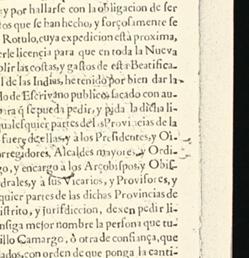 e, y por hallarse con la obligacion de ser
tos que se han hecho, y forçosamente se
Rotulo, cuya expedicion està proxima,
erle licencia para que en toda la Nueva
plir las costas, y gastos de esta Beatifica-
l de las Indias, he tenido por bien dar la
do de Escrivano publico, sacado con au-
para q̃ se pueda pedir, y pida la dicha li-
qualesquier partes de las Provincias de la
fuere de ellas, y à los Presidentes, y Oi-
orregidores, Alcaldes mayores, y Ordi-
go, y encargo à los Arçobispos, y Obis-
drales, y à sus Vicarios, y Provisores, y
quier partes de las dichas Provincias de
istrito, y jurisdiccion, dexen pedir li-
nsiga mejor nombre la persona que tu-
illo Camargo, ò otra de confiança, que
lados, con orden de que ponga la canti-